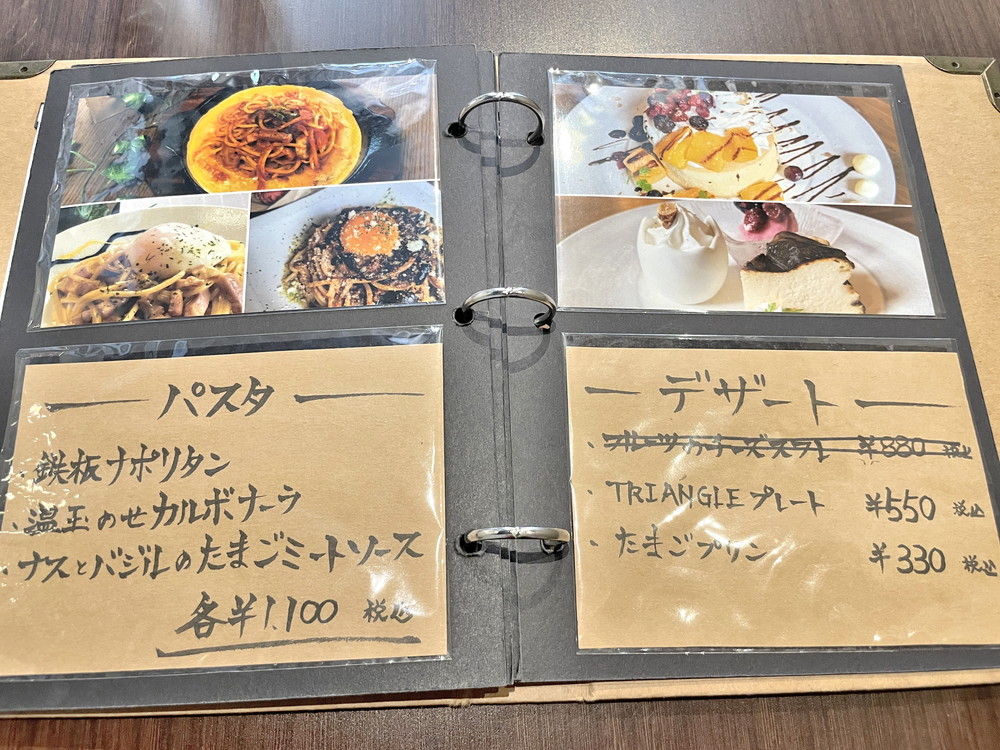 パスタ
・鉄板ナポリタン
・温玉のせカルボナーラ
・ナスとバジルのたまごミートソース
各¥1,100 税込
デザート
・ ¥880 税込
・TRIANGLEプレート ¥550 税込
・たまごプリン ¥330 税込